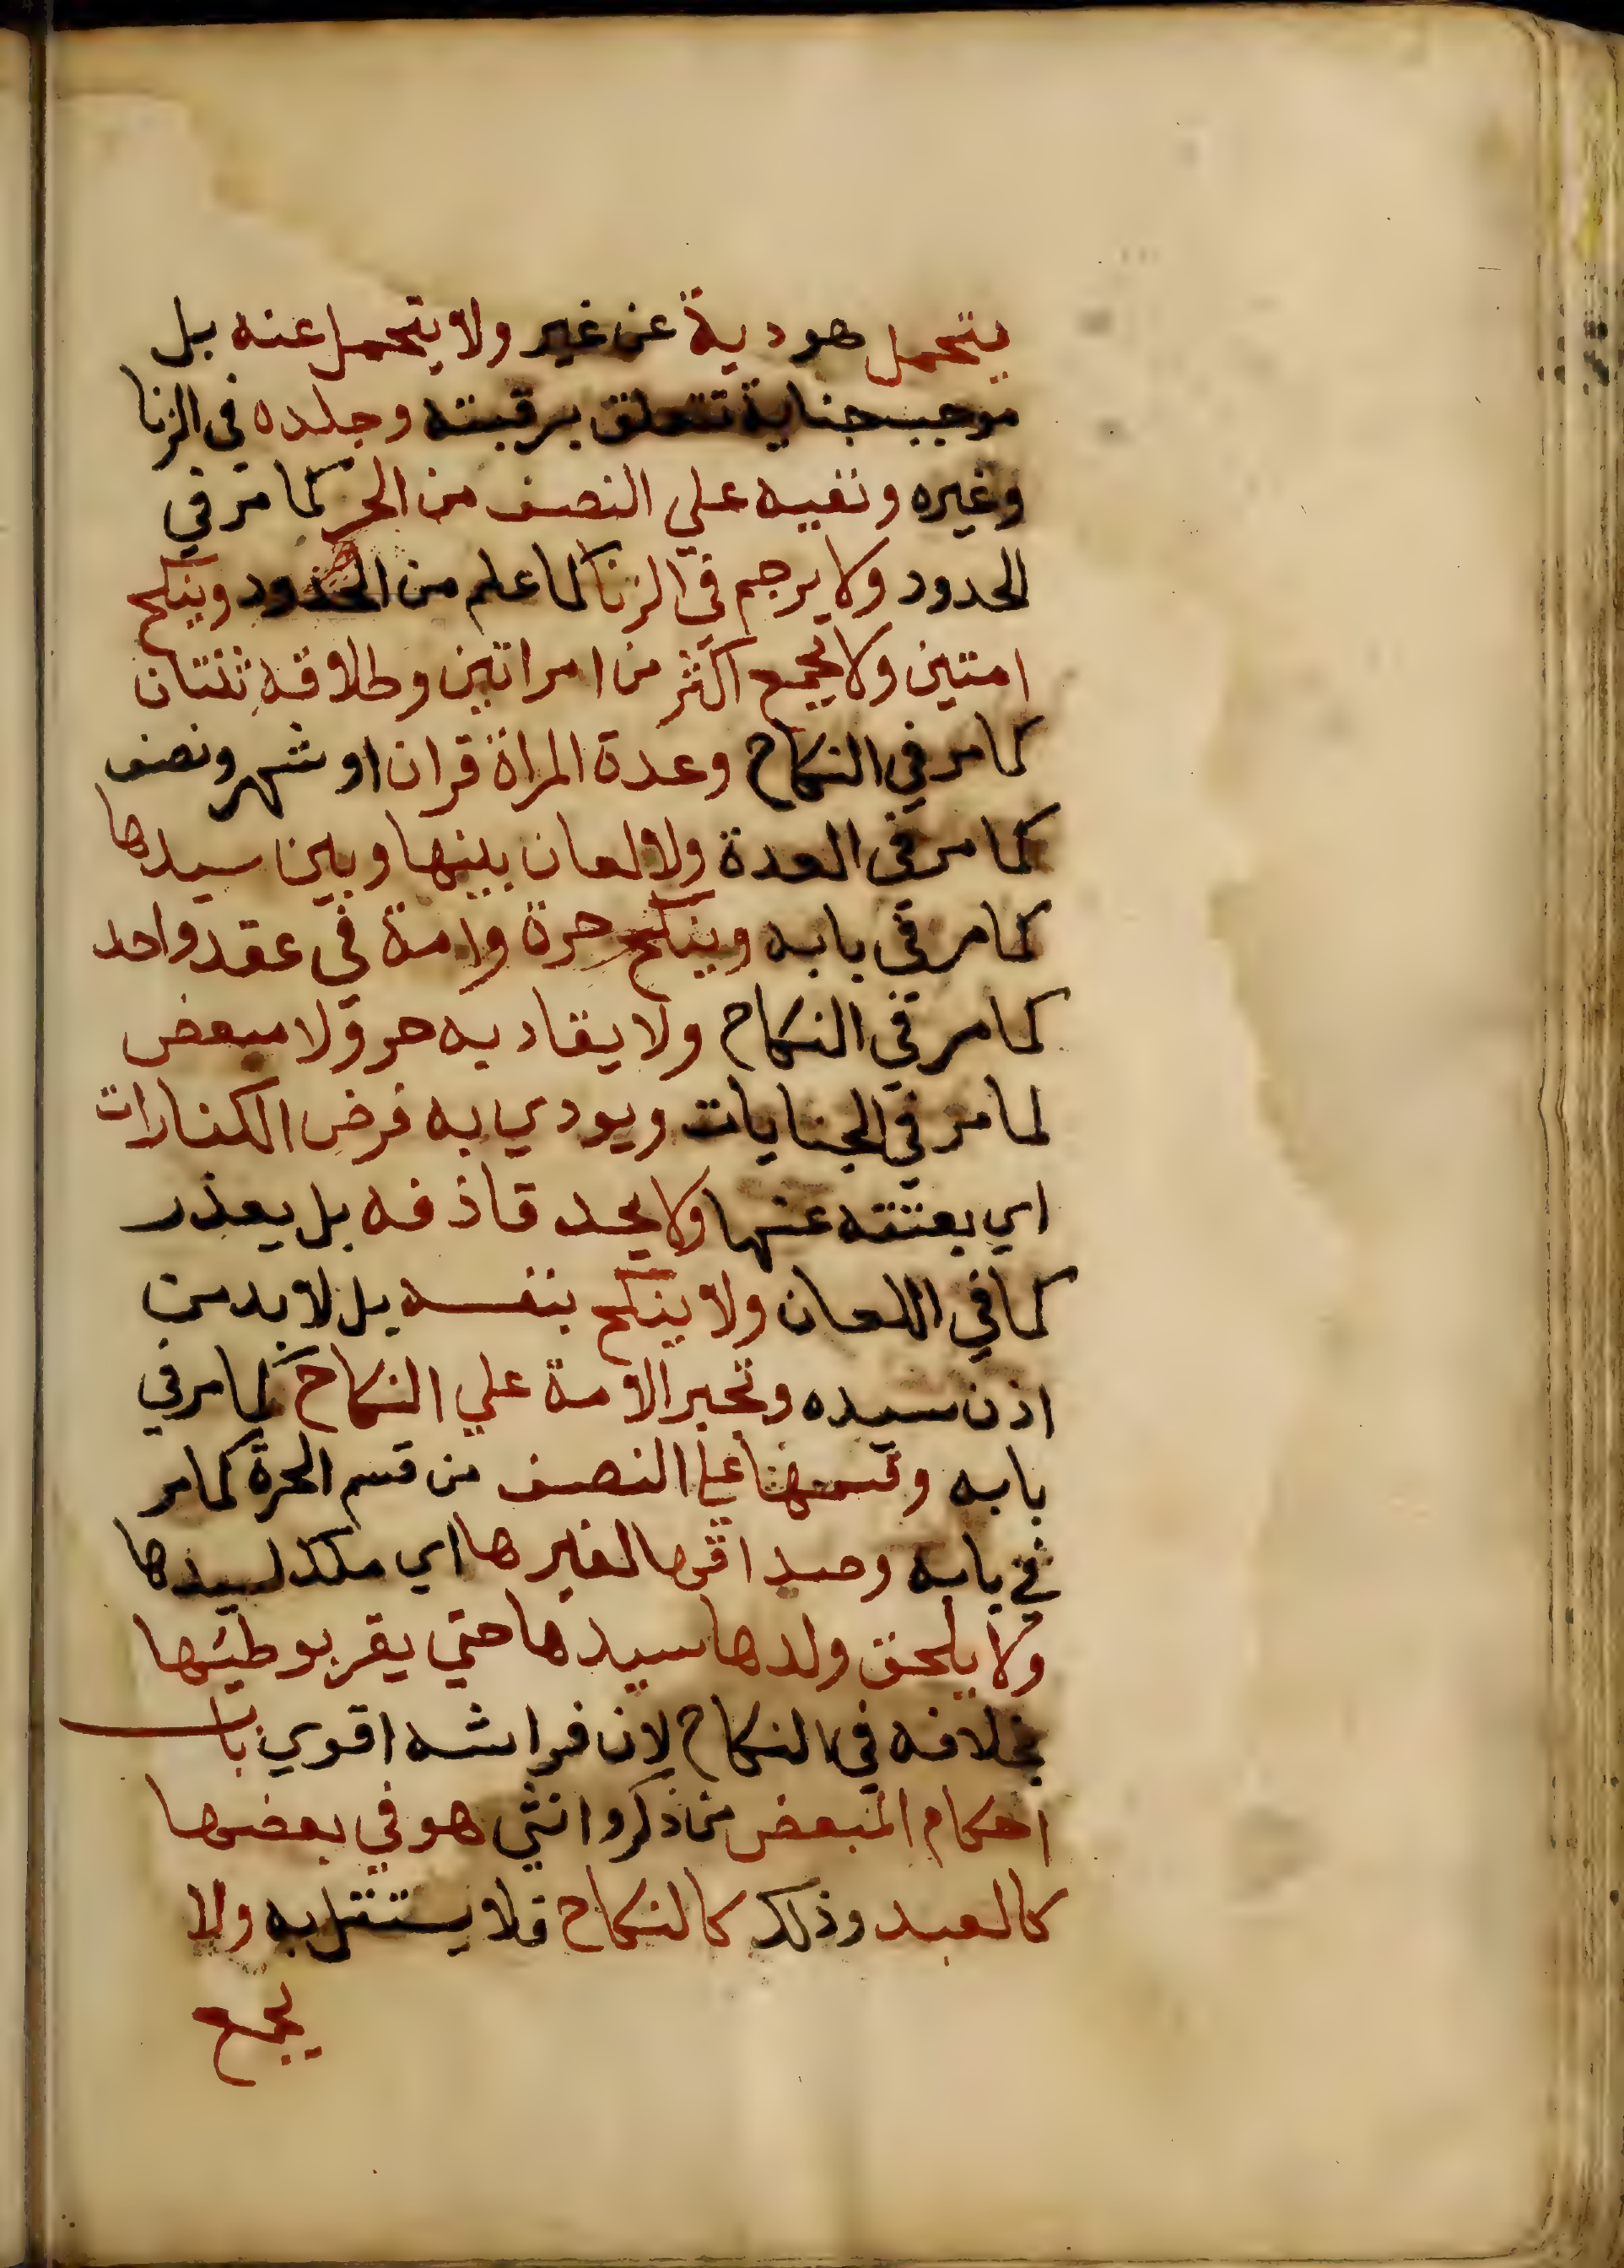 يتحمل هو دية عن غير ولا يتحمل عنه بل
موجب جناية تتعلق برقبته وجلده في الزنا
وغيره ونفيه علي النصف من الحر كما مر في
الحدود ولا يرجم في الزنا لما علم من الحدود وينكح
امتين ولا يجمع اكثر من امراتين وطلاقه ثنتان
كما مر في النكاح وعدة المراة قران او شهر ونصف
كما مر في العدة ولا لعان بينها وبين سيدها
كما مر في بابه وينكح حرة وامة في عقد واحد
كما مر في النكاح ولا يقاد به حر ولا مبعض
لما مر في الجنايات ويودي به فرض الكفارات
اي بعتقه عنها ولا يحد قاذفه بل يعذر
كما في اللعان ولا ينكح بنفسه بل لا بد من
اذن سيده وتجبر الامة علي النكاح كما مر في
بابه وقسمها علي النصف من قسم الحرة كما مر
في بابه وصداقها لغيرها اي ملك لسيدها
ولا يلحق ولدها سيدها حتي يقر بوطيها
بخلافه في النكاح لان فراشه اقوي باب
احكام المبعض من ذكر وانثي هو في بعضها
كالعبد وذلك كالنكاح فلا يستقل به ولا
يجمع